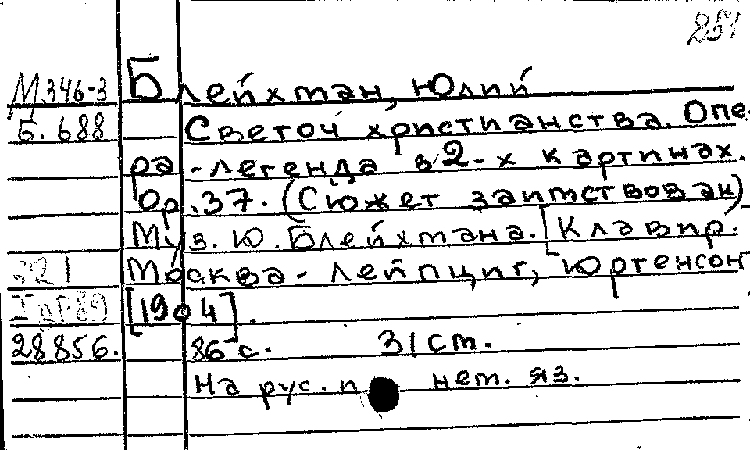 251
М.346-3 Блейхман, Юлий
Б. 688 Светоч христианства. Опе-
ра-легенда в 2-х картинах.
Op. 37. (Сюжет заимствован)
Муз. Ю. Блейхмана. [Клавир.
321 Москва - Лейпциг, Юргенсон
[1904].
28856. 86 с. 31 см.
На рус. и нем. яз.